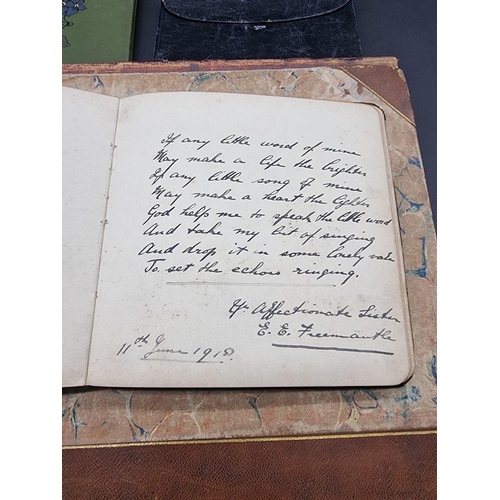 If any little word of mine
May make a life the brighter
If any little song of mine
May make a heart the lighter
God help me to speak the little word
And take my bit of singing
And drop it in some lonely vale
To set the echoes ringing.
Yr Affectionate Sister
E. E. Freemantle
11th June 1918.